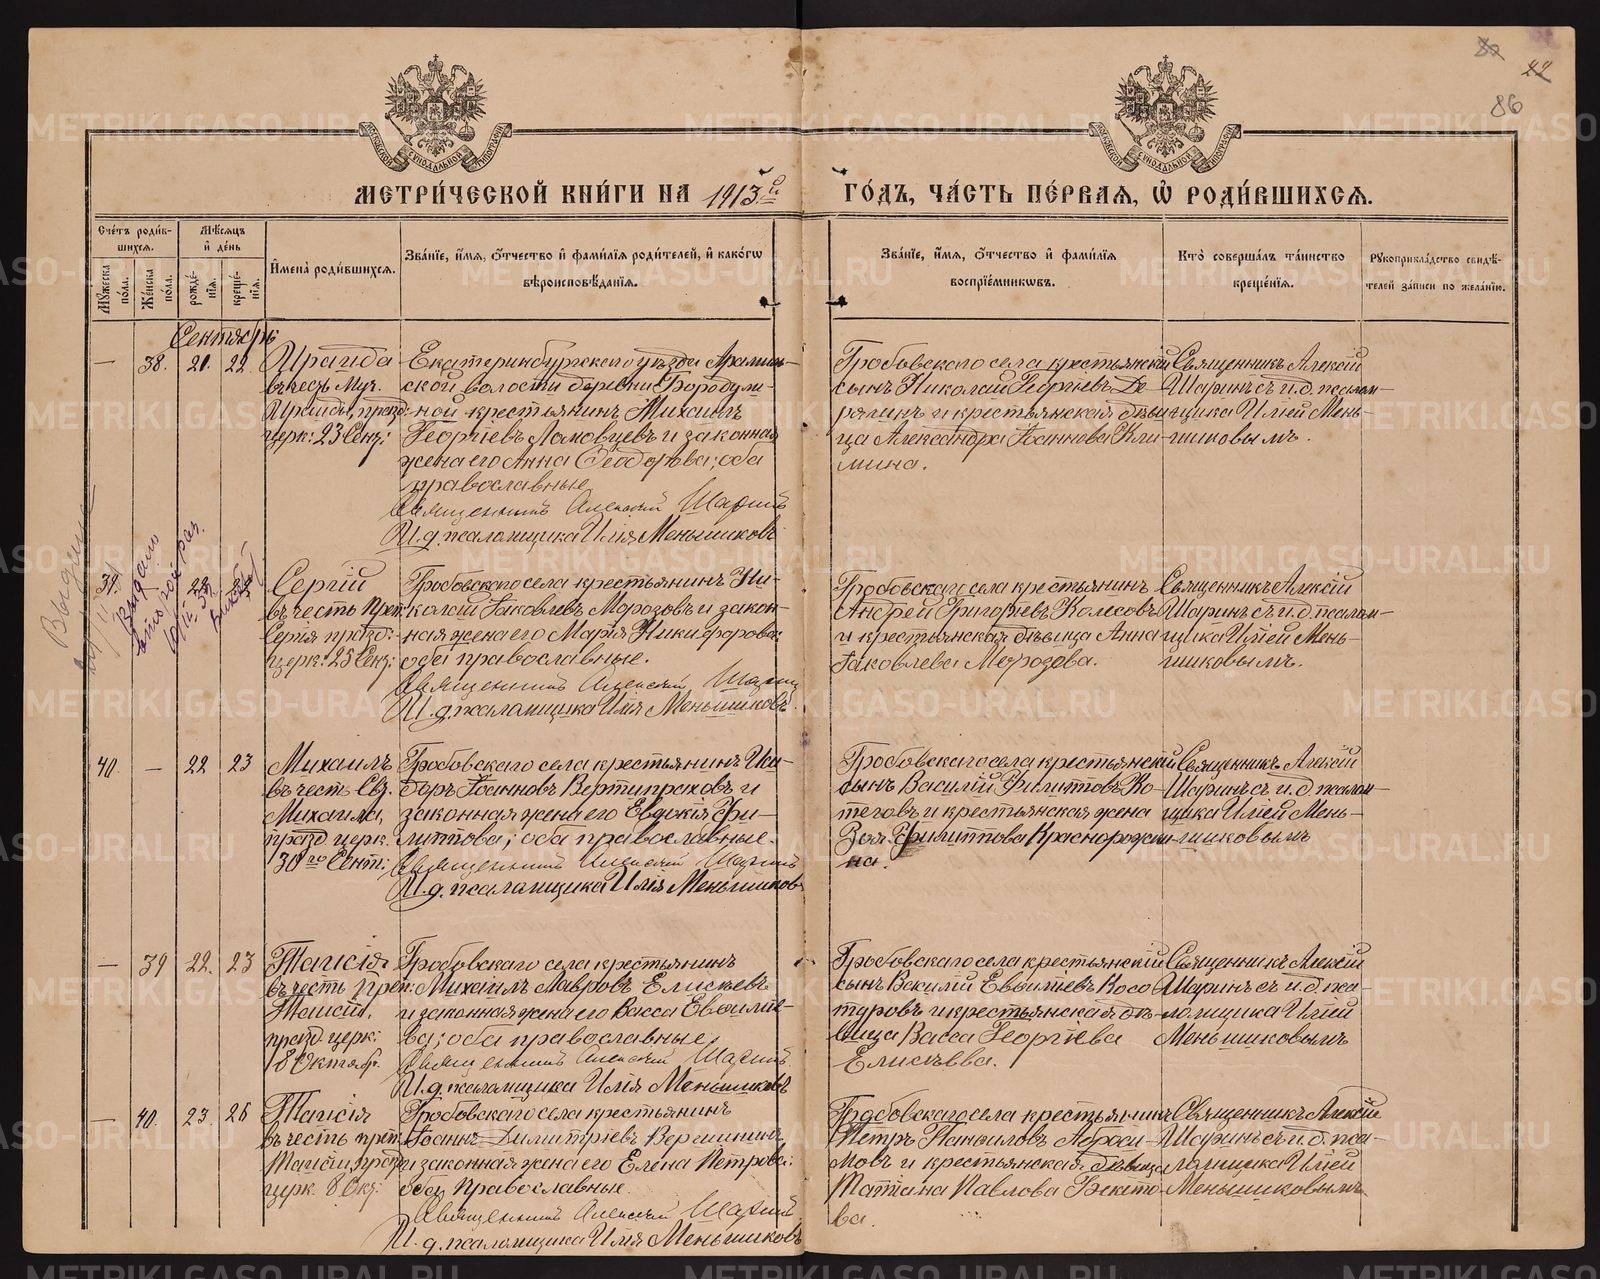 86
МЕТРИ́ЧЕСКОЙ КНИ́ГИ НА 1913й ГО́ДЪ, ЧА́СТЬ ПЕ́РВАЯ, Ѽ РОДИ́ВШИХСЯ.
Сче́тъ роди́в-
шихся.
Мѣ́сяцъ
и де́нь
Мꙋ́жеска по́ла.
Же́нска по́ла.
рожде́-нїя.
креще́-нїя.
Имена̀ роди́вшихся.
Зва́нїе, и́мя, о́тчество и фами́лїя роди́телей, и како́гѡ
вѣроисповѣ́данїя.
Зва́нїе, и́мя, о́тчество и фами́лїя
воспрїе́мникѡвъ.
Кто̀ соверша́лъ та́инство
креще́нїя.
Рꙋкоприкла́дство свидѣ́-
телей за́писи по жела́нїю.
Сентябрь
— 38. 21. 22
Ираида
въ честь Муч.
Ираиды, празд.
церк: 23 Сент:
Екатеринбургскаго уѣзда Арамиль-
ской волости деревни Бородули-
ной крестьянинъ Михаилъ
Георгіевъ Ломовцевъ и законная
жена его Анна Ѳеодорова; оба
православные
Священникъ Алексѣй Шаринъ
И. д. псаломщика Илія Меньшиковъ
Гробовскаго села крестьянскій
сынъ Николай Георгіевъ Де
рялинъ и крестьянская дѣви-
ца Александра Іоаннова Кли-
мина.
Священникъ Алексій
Шаринъ съ и. д. псалом-
щика Иліей Мень-
шиковымъ.
39. 22
Сергій
въ честь Преп.
Сергія празд:
церк: 25 Сент:
Гробовскаго села крестьянинъ Ни-
колай Іаковлевъ Морозовъ и закон-
ная жена его Марія Никифорова;
оба православные.
Священникъ Алексѣй Шаринъ
И. д. псаломщика Илія Меньшиковъ.
Гробовскаго села крестьянинъ
Андрей Григорьевъ Колесовъ
и крестьянская дѣвица Анна
Іаковлева Морозова.
Священникъ Алексій
Шаринъ съ и. д. псалом-
щика Иліей Мень-
шиковымъ.
Выдано
40. — 22 23
Михаилъ
въ честь Св.
Михаила,
празд церк.
30го Сент:
Гробовскаго села крестьянинъ Иси-
доръ Іоанновъ Вертипраховъ и
законная жена его Евдокія Фи-
липпова; оба православные.
Священникъ Алексѣй Шаринъ
И. д. псаломщика Илія Меньшиковъ
Гробовскаго села крестьянскій
сынъ Василій Филипповъ Ко-
теговъ и крестьянская жена
Зоя Филиппова Краснорожи-
на.
Священникъ Алексій
Шаринъ съ и. д. псалом-
щика Иліей Мень-
шиковымъ
— 39 22. 23
Таисія
въ честь Преп:
Таисіи,
празд церк:
8 Октябр.
Гробовскаго села крестьянинъ
Михаилъ Мавровъ Елисѣевъ
и законная жена его Васса Евѳиміе-
ва; оба православные
Священникъ Алексѣй Шаринъ
И. д. псаломщика Илія Меньшиковъ
Гробовскаго села крестьянскій
сынъ Василій Евѳиміевъ Косо
туровъ и крестьянская дѣ-
вица Васса Георгіева
Елисѣева.
Священникъ Алексій
Шаринъ съ и. д. пса-
ломщика Иліей
Меньшиковымъ
— 40. 23. 26
Таисія
въ честь преп.
Таисіи, празд
церк. 8 Окт:
Гробовскаго села крестьянинъ
Іоаннъ Димитріевъ Вершининъ
и законная жена его Елена Петрова;
оба православные.
Священникъ Алексѣй Шаринъ
И. д. псаломщика Илія Меньшиковъ
Гробовскаго села крестьянинъ
Петръ Панфиловъ Аброси-
мовъ и крестьянская дѣвица
Татіана Павлова Бекето-
ва.
Священникъ Алексій
Шаринъ съ и. д. пса-
ломщика Иліей
Меньшиковымъ
METRIKI.GASO-URAL.RU